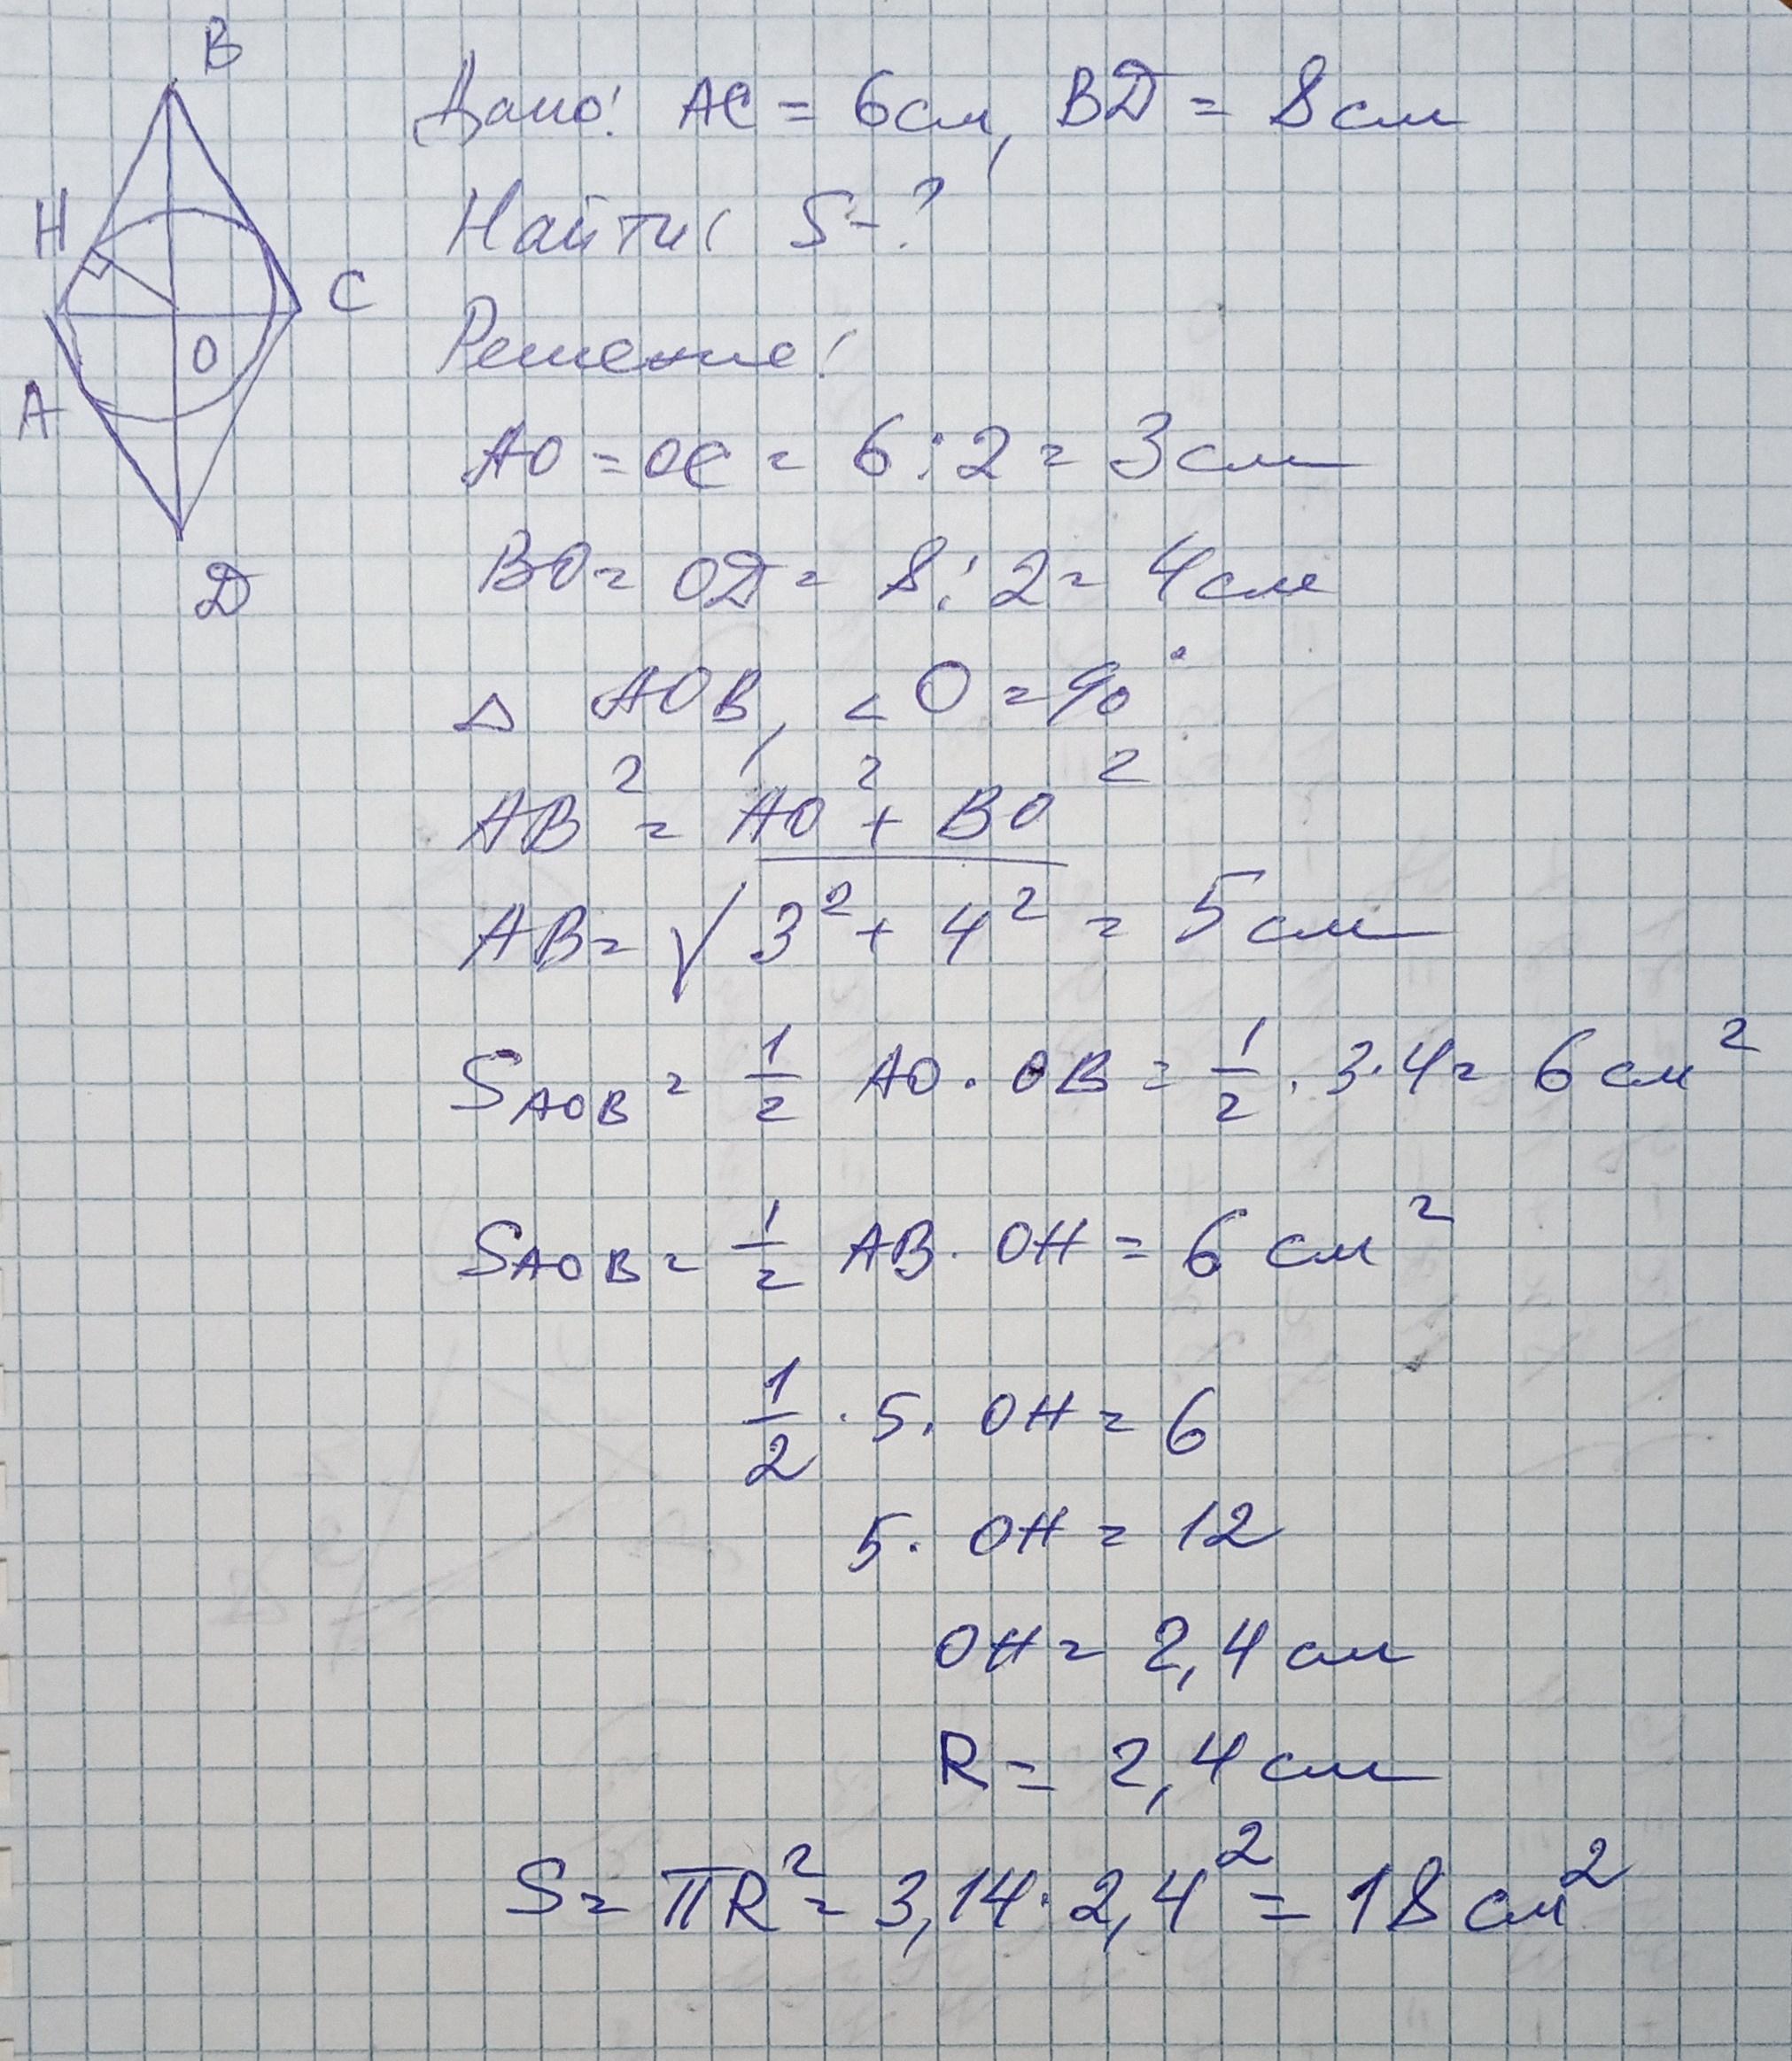 B
Дано: AC = 6 см, BD = 8 см
H
Найти: S - ?
C
Решение:
O
A
AO = OC = 6 : 2 = 3 см
BO = OD = 8 : 2 = 4 см
D
△ AOB, ∠O = 90°
AB² = AO² + BO²
AB = √3² + 4² = 5 см
S AOB = 1/2 AO · OB = 1/2 · 3 · 4 = 6 см²
S AOB = 1/2 AB · OH = 6 см²
1/2 · 5 · OH = 6
5 · OH = 12
OH = 2,4 см
R = 2,4 см
S = πR² = 3,14 · 2,4² = 18 см²